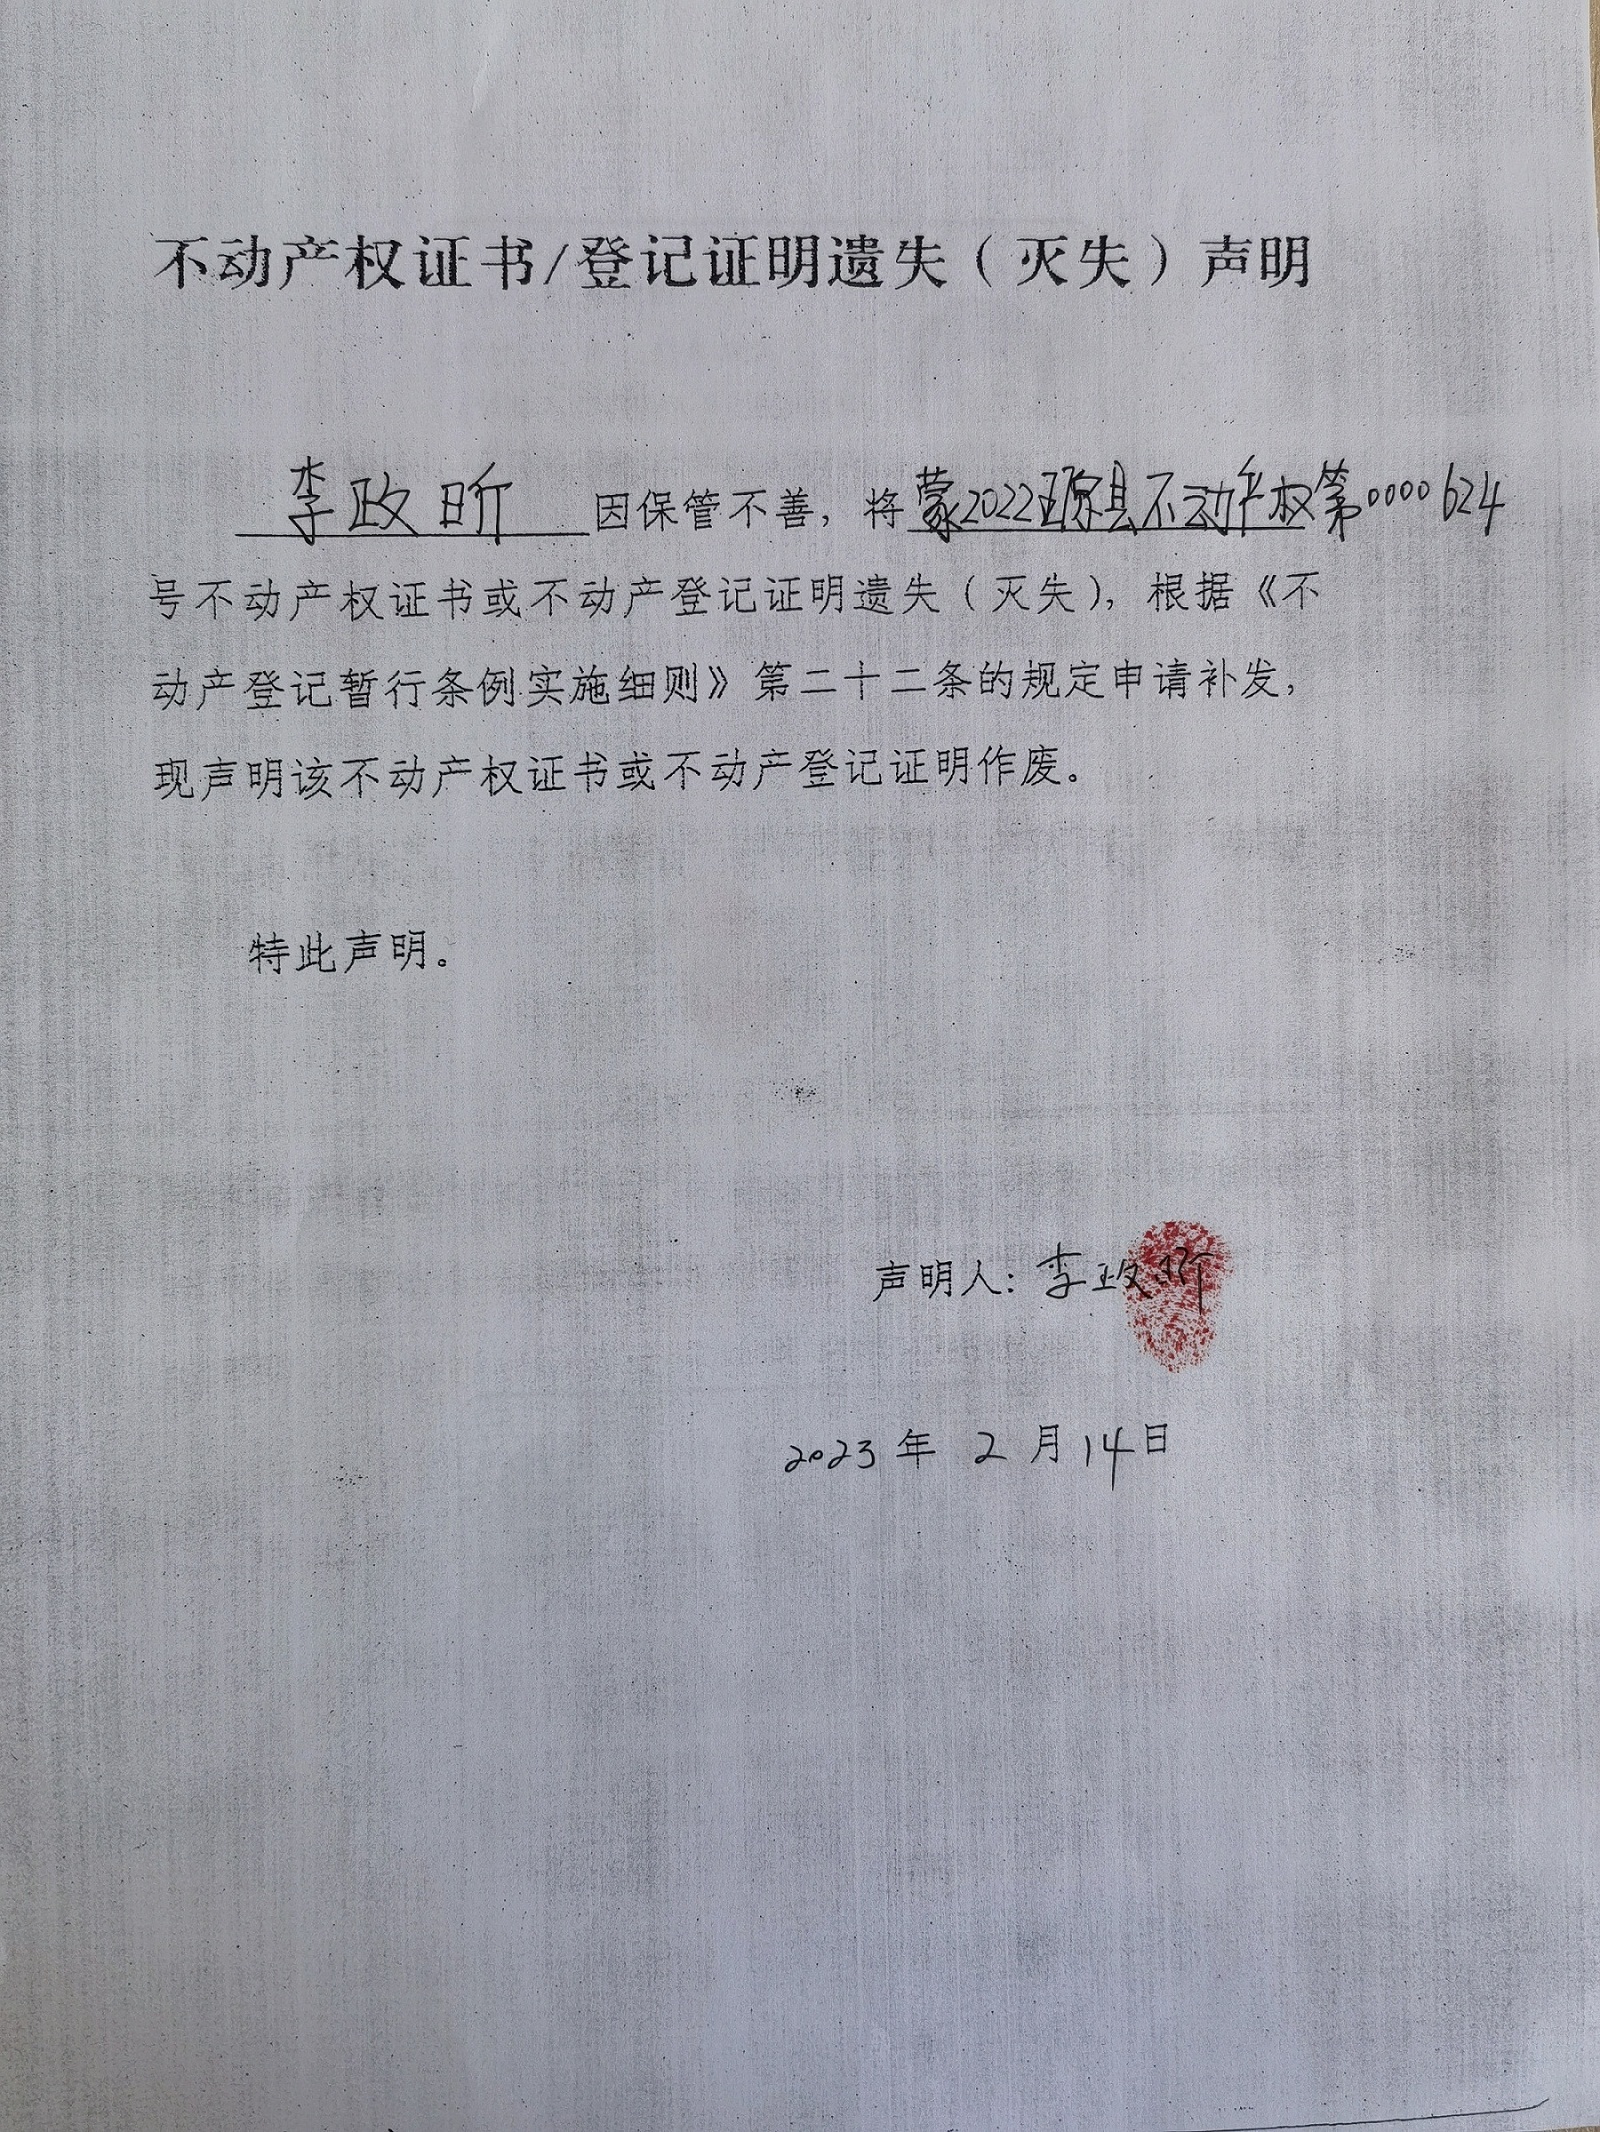 不动产权证书/登记证明遗失（灭失）声明
李政昕 因保管不善，将 蒙2022 县不动产权第0000624
号不动产权证书或不动产登记证明遗失（灭失），根据《不
动产登记暂行条例实施细则》第二十二条的规定申请补发，
现声明该不动产权证书或不动产登记证明作废。
特此声明。
声明人：李政昕
2023 年 2 月 14 日